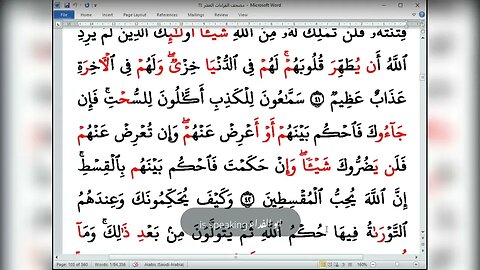 مصحف القراءات العشر ٦ - Microsoft Word
File Home Insert Page Layout References Mailings Review View
فِتۡنَتَهُۥ فَلَن تَمۡلِكَ لَهُۥ مِنَ ٱللَّهِ شَيۡـًٔاۚ أُوْلَٰٓئِكَ ٱلَّذِينَ لَمۡ يُرِدِ
ٱللَّهُ أَن يُطَهِّرَ قُلُوبَهُمۡۚ لَهُمۡ فِي ٱلدُّنۡيَا خِزۡيٞۖ وَلَهُمۡ فِي ٱلۡأٓخِرَةِ
عَذَابٌ عَظِيمٞ ٤١ سَمَّٰعُونَ لِلۡكَذِبِ أَكَّٰلُونَ لِلسُّحۡتِۚ فَإِن
جَآءُوكَ فَٱحۡكُم بَيۡنَهُمۡ أَوۡ أَعۡرِضۡ عَنۡهُمۡۖ وَإِن تُعۡرِضۡ عَنۡهُمۡ
فَلَن يَضُرُّوكَ شَيۡـٔٗاۖ وَإِنۡ حَكَمۡتَ فَٱحۡكُم بَيۡنَهُم بِٱلۡقِسۡطِۚ
إِنَّ ٱللَّهَ يُحِبُّ ٱلۡمُقۡسِطِينَ ٤٢ وَكَيۡفَ يُحَكِّمُونَكَ وَعِندَهُمُ
is speaking
ٱلتَّوۡرَىٰةُ فِيهَا حُكۡمُ ٱللَّهِ ثُمَّ يَتَوَلَّوۡنَ مِنۢ بَعۡدِ ذَٰلِكَۚ وَمَآ
Arabic (Saudi Arabia) 160%